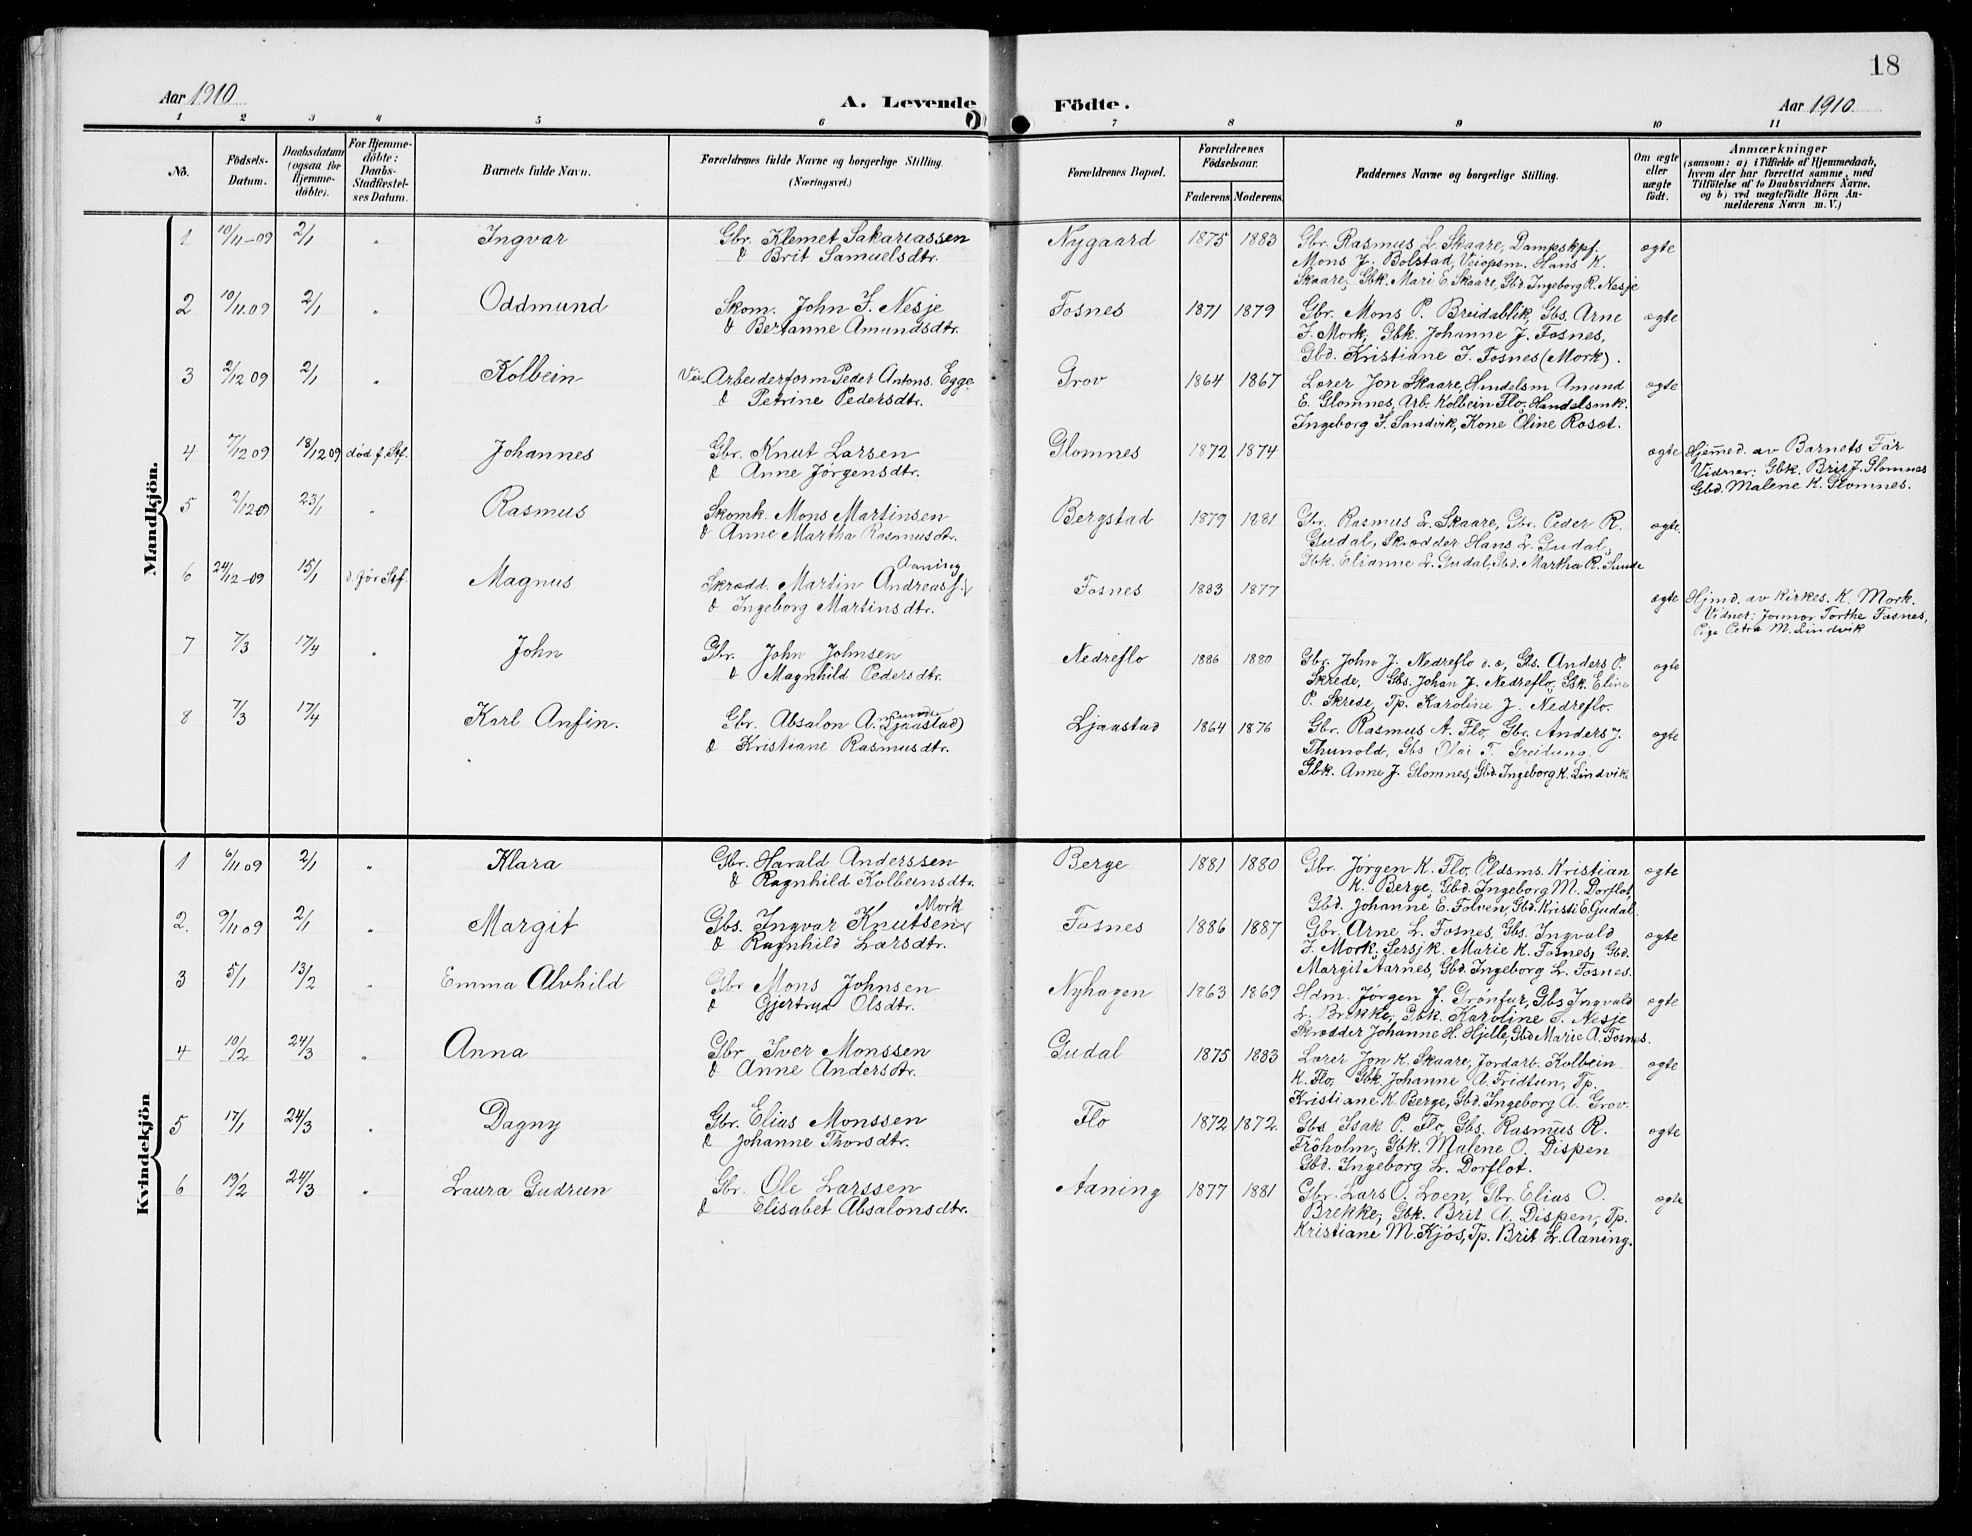 18
Aar 1910
A. Levende Födte.
Aar 1910
1 2 3 4 5 6 7 8 9 10 11
No.
Födsels-
Datum.
Daabsdatum
(ogsaa for
Hjemme-
döbte).
For Hjemme-
döbte:
Daabs-
Stadfæstel-
ses Datum.
Barnets fulde Navn.
Forældrenes fulde Navne og borgerlige Stilling.
(Næringsvei.)
Forældrenes Bopæl.
Forældrenes
Födselsaar.
Faderens
Moderens.
Faddernes Navne og borgerlige Stilling.
Om ægte
eller
uægte
födt.
Anmærkninger
(saasom: a) i Tilfælde af Hjemmedaab,
hvem der har forrettet samme, med
Tilföielse af to Daabsvidners Navne,
og b) ved uægtefödte Börn An-
melderens Navn m. V.)
Mandkjön.
1 10/11-09 2/1 " Ingvar Gbr. Klemet Sakariassen Nygaard 1875 1883 Gbr. Rasmus L. Skaare, Dampskpf. ægte
& Brit Samuelsdtr. Mons J. Bolstad, Veiopsm. Hans K.
Skaare, Gbk. Mari E. Skaare, Gbd. Ingeborg R. Nesje
2 10/11.09 2/1 " Oddmund Skom. John I. Nesje Fosnes 1871 1879 Gbr. Mons P. Breidablik, Gbs. Arne ægte
& Bertanne Amundsdtr. I. Mork, Gbk. Johanne J. Fosnes,
Gbd. Kristiane I. Fosnes (Mork).
3 2/12 09 2/1 " Kolbein Vei Arbeiderform Peder Antons. Egge Grov 1864 1867 Lærer Jon Skaare, Handelsm Amund ægte
& Petrine Pedersdtr. E. Glomnes, Arb. Kolbein Flo, Handelsmk.
Ingeborg I. Sandvik, Kone Oline Roset.
4 7/12 09 18/12 09 død f. Stf. Johannes Gbr. Knut Larsen Glomnes 1872 1874 ægte Hjemmed. av Barnets Far
& Anne Jørgensdtr. Vidner: Gbk. Brit J. Glomnes
Gbd. Malene K. Glomnes.
5 2/12 09 23/1 " Rasmus Skomk. Mons Martinsen Bergstad 1879 1881 Gbr. Rasmus L. Skaare, Gbr. Peder R. ægte.
& Anne Martha Rasmusdtr. Gudal, Skrædder Hans L. Gudal,
Gbk. Elianne L. Gudal, Gbd. Martha R. Sunde
Aaning
6 24/12-09 15/1 d. før Stf. Magnus Skrædd. Martin Andreas f. Fosnes 1883 1877 ægte Hjmd. av Kirkes. K. Mork.
& Ingeborg Martinsdtr. Vidner: Jormor Torthe Fosnes,
Pige Petra M. Lindvik
7 7/3 17/4 " John Gbr. John Johnsen Nedreflo 1886 1880 Gbr. John J. Nedreflo d. æ, Gbs. Anders P. ægte
& Magnhild Pedersdtr. Skrede, Gbs. Johan J. Nedreflo, Gbk. Eline
P. Skrede, Tp. Karoline J. Nedreflo.
Sunde
8 7/3 17/4 " Karl Anfin. Gbr. Absalon A. (Ljaastad) Ljaastad 1864 1876 Gbr. Rasmus A. Flo, Gbr. Anders J. ægte
& Kristiane Rasmusdtr. Thunold, Gbs Olai T. Greidung.
Gbk. Anne J. Glomnes, Gbd. Ingeborg K. Lindvik
Kvindekjön
1 6/11 09 2/1 " Klara Gbr. Harald Anderssen Berge 1881 1880 Gbr. Jørgen K. Flo, Oldsms. Kristian ægte
& Ragnhild Kolbeinsdtr. K. Berge, Gbd. Ingeborg M. Dorflot,
Gbd. Johanne E. Folven, Gbd. Kristi E. Gudal.
Mork
2. 9/11 09 2/1 " Margit Gbs. Ingvar Knutsen Fosnes 1886 1887 Gbr. Arne L. Fosnes, Gbs. Ingvald ægte
& Ragnhild Larsdtr. I. Mork, Sersjk. Marie K. Fosnes, Gbd.
Margit Aarnes, Gbd. Ingeborg L. Fosnes.
3 5/1 13/2 " Emma Alvhild Gbr Mons Johnsen Nyhagen 1863 1869 Hdm. Jørgen J. Grönfur, Gbs Ingvald ægte
& Gjertrud Olsdtr. L. Brekke, Gbk. Karoline I. Nesje
Skrædder Johanne H. Hjelle, Gbd Marie A. Fosnes.
4 10/2 24/3 " Anna Gbr Iver Monssen Gudal 1875 1883 Lærer Jon K. Skaare, Jordarb. Kolbein ægte
& Anne Andersdtr. K. Flo, Gbk. Johanne A. Fridtun, Tp.
Kristiane K. Berge, Gbd. Ingeborg A. Grov.
5 17/1 24/3 " Dagny Gbr. Elias Monssen Flo 1872 1872. Gbs Isak P. Flo, Gbs. Rasmus R. ægte
& Johanne Thorsdtr. Fröholm, Gbk. Malene O. Dispen
Gbd. Ingeborg L. Dorflot.
6 19/2 24/3 " Laura Gudrun Gbr. Ole Larssen Aaning 1877 1881 Gbr. Lars O. Loen, Gbr. Elias O. ægte
& Elisabet Absalonsdtr. Brekke, Gbk. Brit A. Dispen, Tp.
Kristiane M. Kjøs, Tp. Brit L. Aaning.